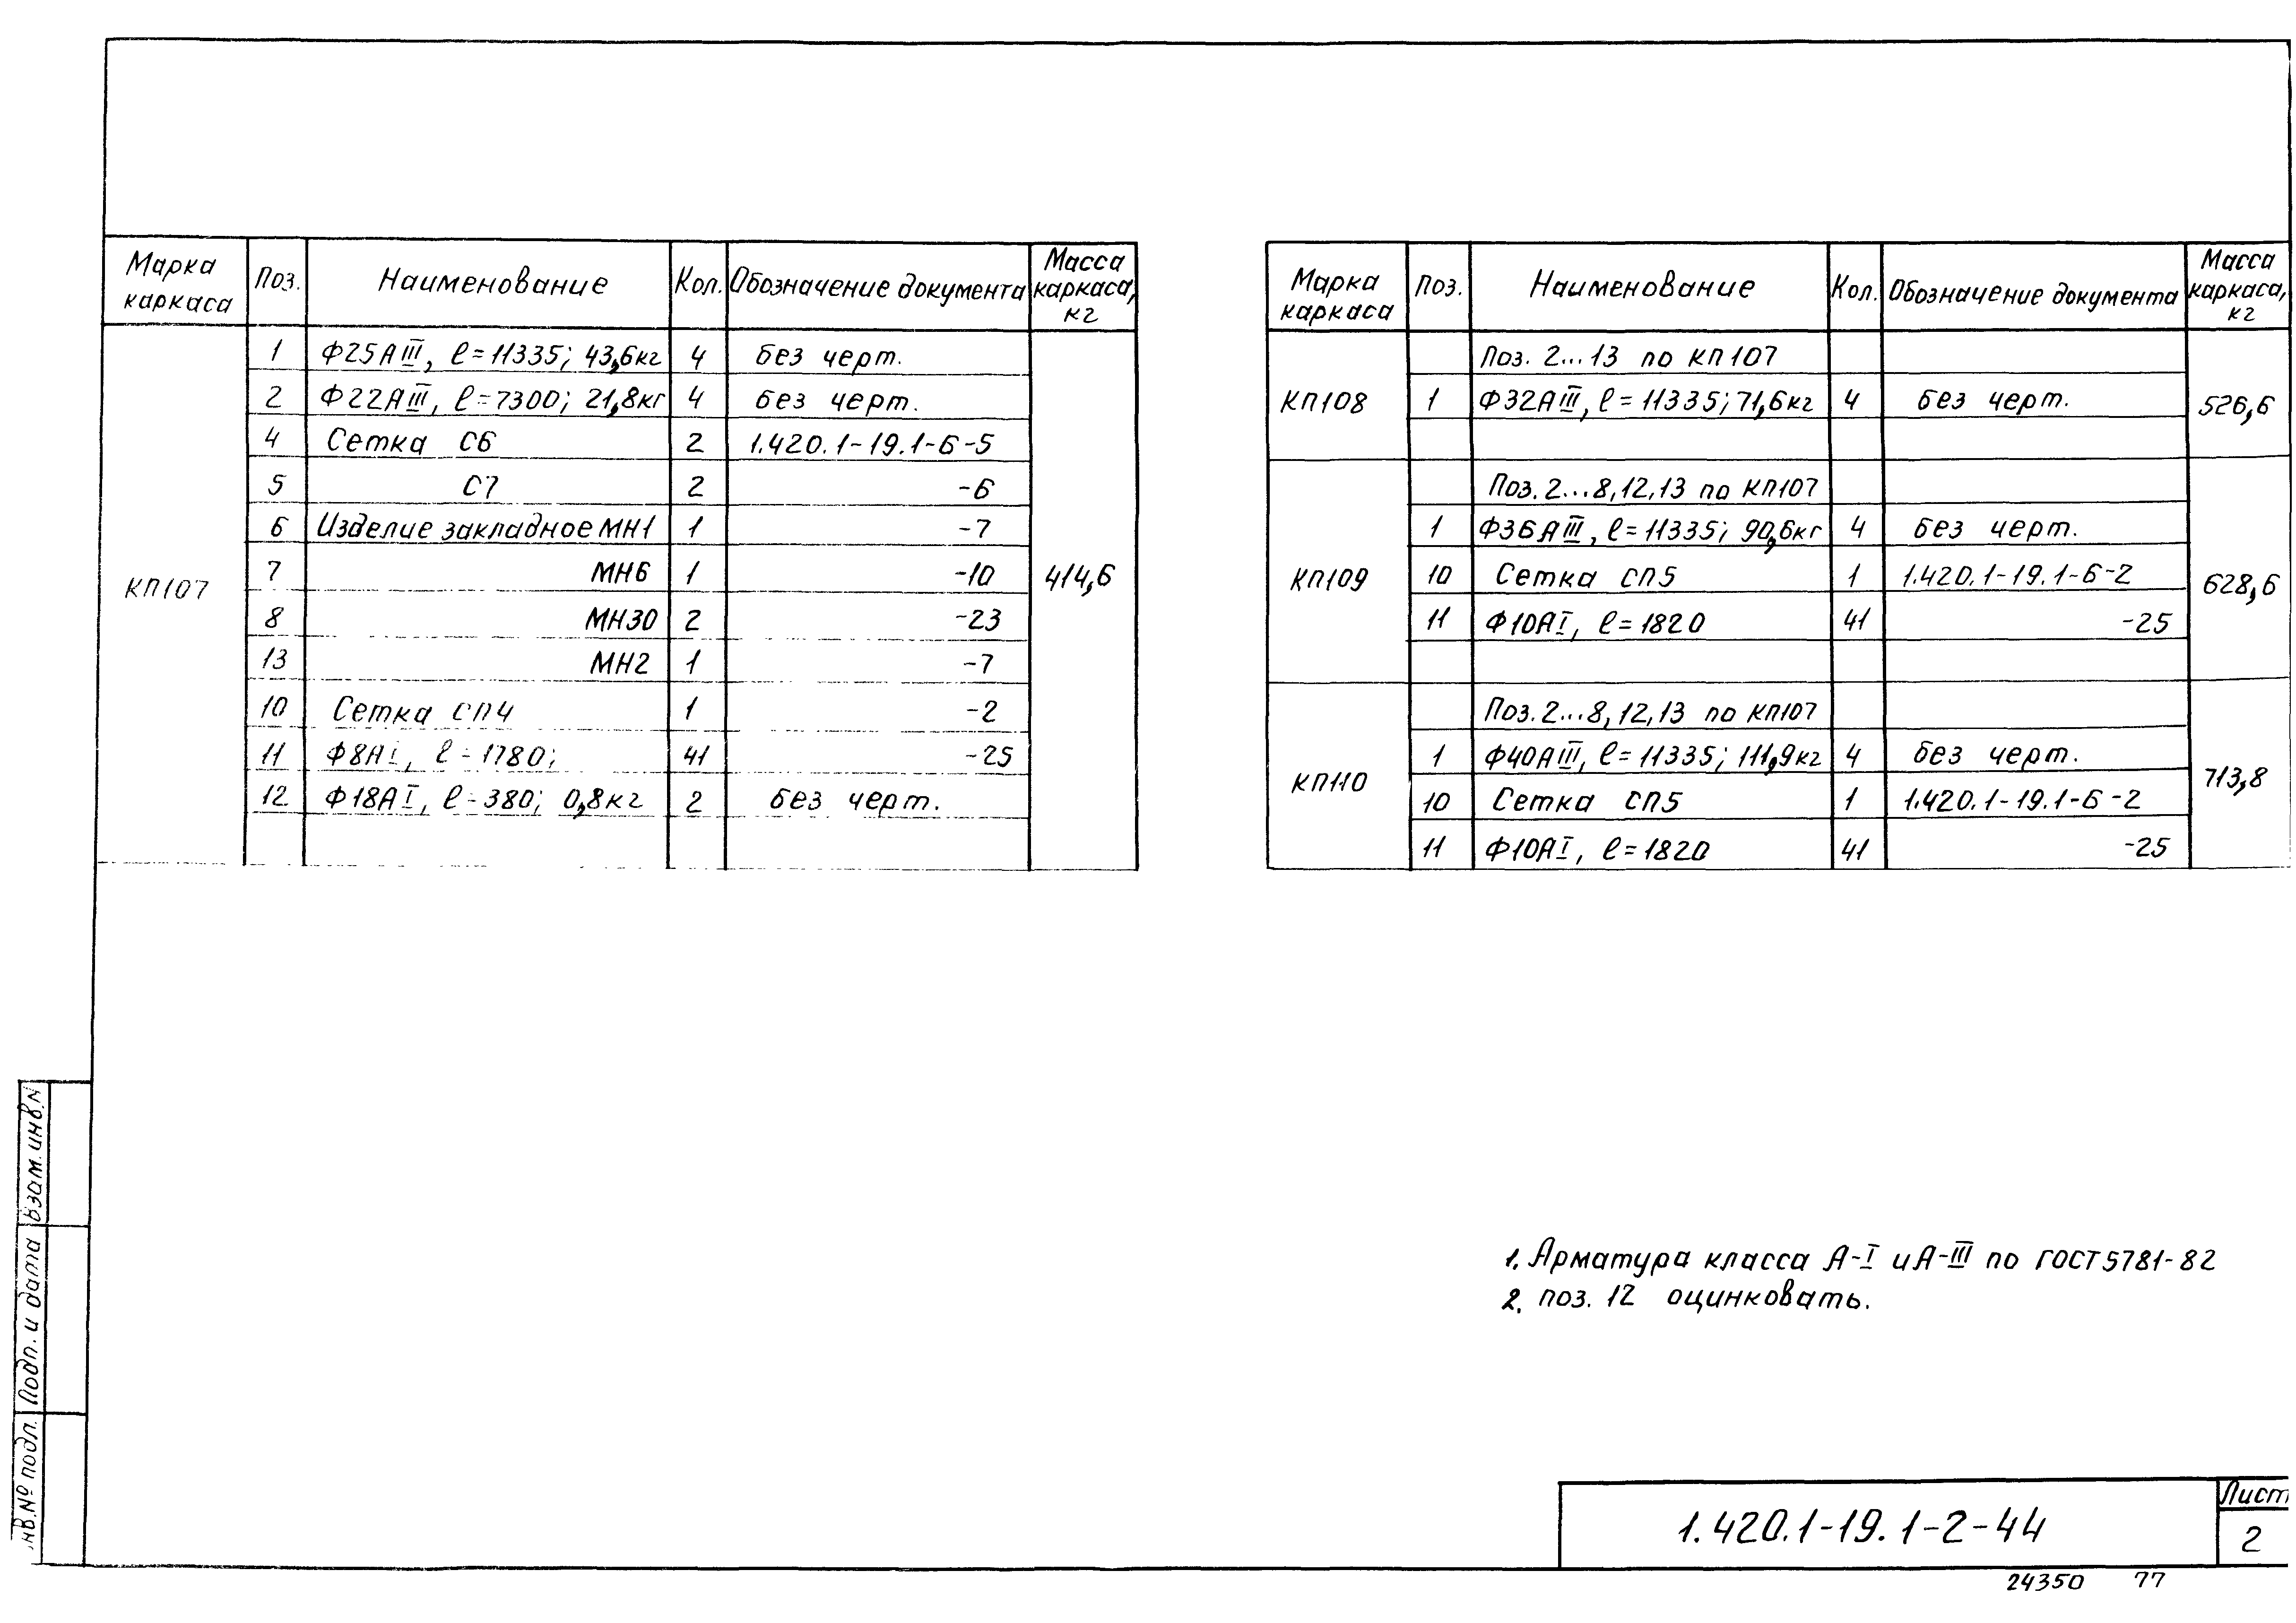 Марка каркаса | Поз. | Наименование | Кол. | Обозначение документа | Масса каркаса, кг
КП107 | 1 | Ф25АIII, ℓ=11335; 43,6кг | 4 | без черт. | 414,6
2 | Ф22АIII, ℓ=7300; 21,8кг | 4 | без черт.
4 | Сетка С6 | 2 | 1.420.1-19.1-6-5
5 | С7 | 2 | -6
6 | Изделие закладное МН1 | 1 | -7
7 | МН6 | 1 | -10
8 | МН30 | 2 | -23
13 | МН2 | 1 | -7
10 | Сетка СП4 | 1 | -2
11 | Ф8АI, ℓ=1780; | 41 | -25
12 | Ф18АI, ℓ=380; 0,8кг | 2 | без черт.
Марка каркаса | Поз. | Наименование | Кол. | Обозначение документа | Масса каркаса, кг
КП108 | Поз. 2...13 по КП107 | 526,6
1 | Ф32АIII, ℓ=11335; 71,6кг | 4 | без черт.
КП109 | Поз. 2...8,12,13 по КП107 | 628,6
1 | Ф36АIII, ℓ=11335; 90,6кг | 4 | без черт.
10 | Сетка СП5 | 1 | 1.420.1-19.1-6-2
11 | Ф10АI, ℓ=1820 | 41 | -25
КП110 | Поз. 2...8,12,13 по КП107 | 713,8
1 | Ф40АIII, ℓ=11335; 111,9кг | 4 | без черт.
10 | Сетка СП5 | 1 | 1.420.1-19.1-6-2
11 | Ф10АI, ℓ=1820 | 41 | -25
1. Арматура класса А-I и А-III по ГОСТ 5781-82
2. поз. 12 оцинковать.
Взам. инв. N
Подп. и дата
нв. № подл.
1.420.1-19.1-2-44
Лист
2
24350 77